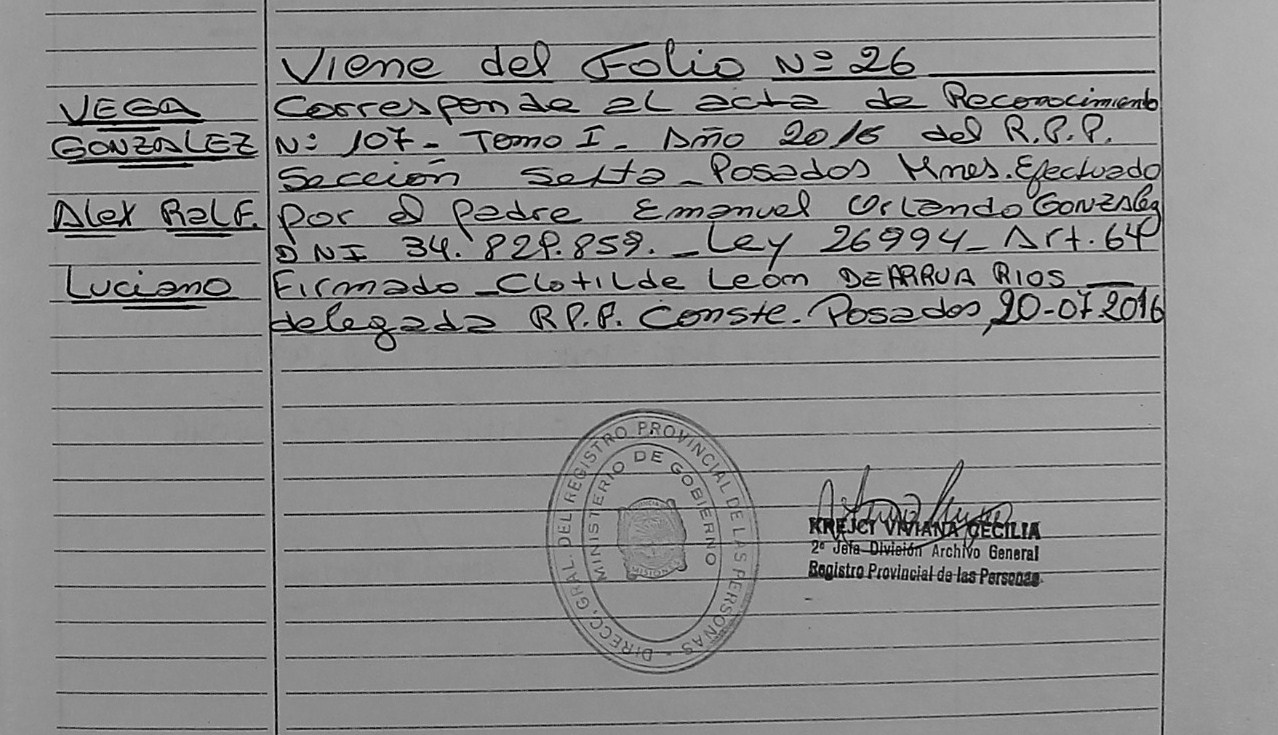 Viene del Folio Nº 26
VEGA
GONZALEZ
Alex Ralf.
Luciano
Corresponde al acta de Reconocimiento
Nº 107 - Tomo I - Año 2016 del R.P.P.
Sección Sexta - Posadas Mnes. Efectuado
por el padre Emanuel Orlando Gonzalez
DNI 34.829.859. - Ley 26994 - Art. 64
Firmado - Clotilde León DE ARRUA RIOS
delegada R.P.P. Conste. Posadas, 20-07-2016
DIRECC. GRAL. DEL REGISTRO PROVINCIAL DE LAS PERSONAS -
MINISTERIO DE GOBIERNO
MISIONES
KREJCI VIVIANA CECILIA
2º Jefa División Archivo General
Registro Provincial de las Personas